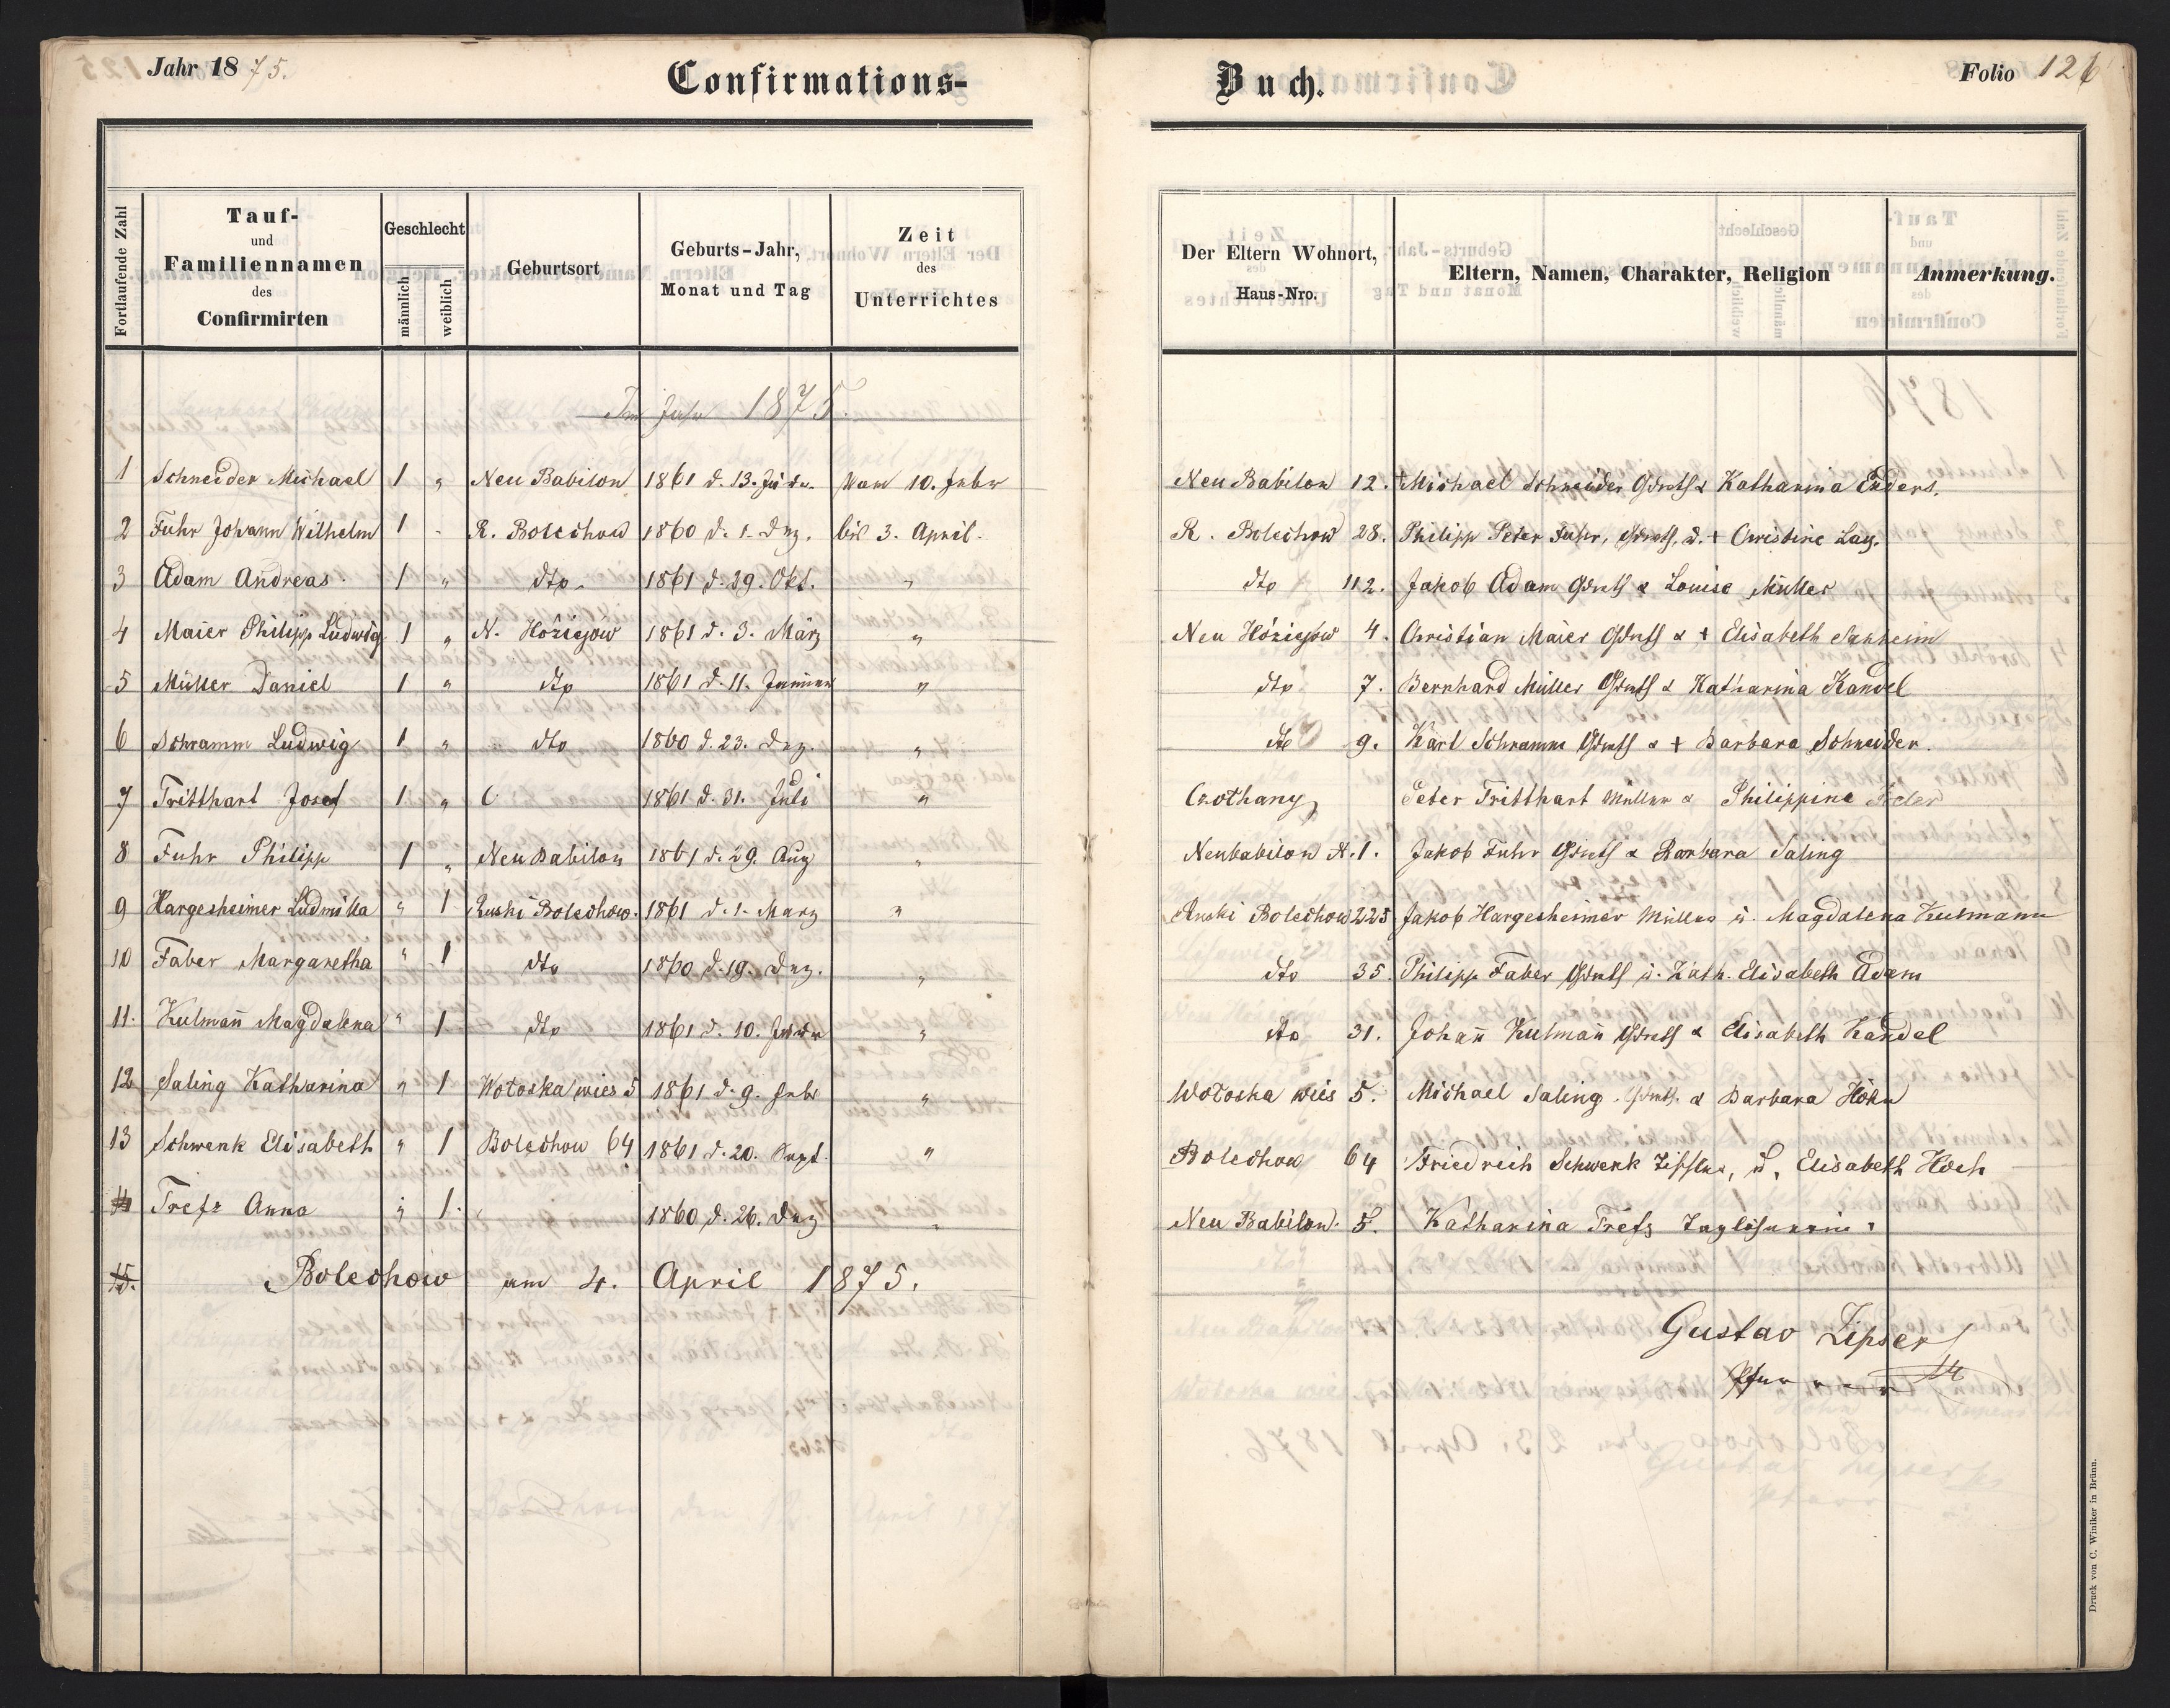 Jahr 1875.
Confirmations-
Buch.
Folio 126
Fortlaufende Zahl
Tauf-
und
Familiennamen
des
Confirmirten
Geschlecht
männlich
weiblich
Geburtsort
Geburts-Jahr,
Monat und Tag
Zeit
des
Unterrichtes
Der Eltern Wohnort,
Haus-Nro.
Eltern, Namen, Charakter, Religion
Anmerkung.
Im Jahr 1875.
1 Schneider Michael 1 " Neu Babilon 1861 d. 13. Vom 10. Febr Neu Babilon 12. Michael Schneider Grdrts & Katharina Enders.
2 Fuhr Johann Wilhelm 1 - R. Bolechow 1860 d. 1. Dez. bis 3. April. R. Bolechow 28. Philipp Peter Fuhr, Grdrts. u. + Christine Lay.
3 Adam Andreas. 1 " dto. 1861 d. 29. Okt. " dto 112. Jakob Adam Grdrts & Louise Müller
4 Maier Philipp Ludwig 1 " N. Hóziejów 1861 d. 3. März " Neu Hóziejów 4. Christian Maier Grdrts & + Elisabeth Sauheim
5 Müller Daniel 1 " dto 1861 d. 11. Januar " dto 7. Bernhard Müller Grdrts & Katharina Kandel
6 Schramm Ludwig 1 " dto 1860 d. 23. Dez. " dto 9. Karl Schramm Grdrts & + Barbara Schneider.
7 Tritthart Josef 1 " 1861 d. 31. Juli " Czothany Peter Tritthart Müller & Philippine
8 Fuhr Philipp 1 " Neu Babilon 1861 d. 29. Aug " Neubabilon N. 1. Jakob Fuhr Grdrts & Barbara Saling
9 Hargesheimer Ludmilla " 1 Ruski Bolechow. 1861 d. 1. März " Ruski Bolechow 225 Jakob Hargesheimer Müller u. Magdalena Kulmann
10 Faber Margaretha " 1 dto 1860 d. 19. Dez. " dto 35. Philipp Faber Grdrts u. Kath. Elisabeth Adam
11. Kulman̄ Magdalena " 1 dto 1861 d. 10. " dto 31. Johan̄ Kulman̄ Grdrts & Elisabeth Kandel
12 Saling Katharina " 1 Wołoska wies 5 1861 d. 9. Febr " Wołoska wies 5. Michael Saling. Grdrts. & Barbara Höhn
13 Schwenk Elisabeth " 1 Bolechow 64 1861 d. 20. Sept. " Bolechow 64 Friedrich Schwenk Tischler, u. Elisabeth Hoch
14 Trefz Anna " 1. 1860 d. 26. Dez " Neu Babilon. 5. Katharina Trefz Taglöhnerin.
15. Bolechow am 4. April 1875.
Gustav Lipser
Pfarrer
Druck von C. Winiker in Brünn.